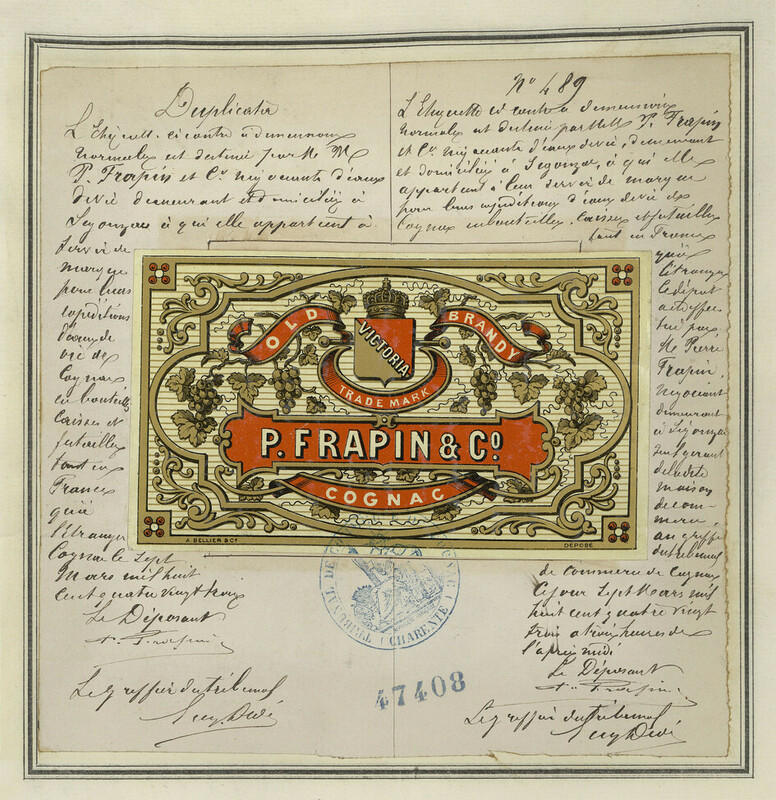 Duplicata
L'Etiquette ci contre à dimensions
normales est destinée par M M
P. Frapin et Cie négociants d'eaux
de vie demeurant et domiciliés à
Segonzac à qui elle appartient à
servir de
marque
pour leurs
expéditions
d'eaux de
vie de
Cognac
en bouteilles
caisses et
futailles
tant en
France
qu'à
l'étranger
Cognac le Sept
Mars mil huit
cent quatre vingt trois
Le Déposant
P. Frapin
Le greffier du tribunal
No 489
L'Etiquette ci contre à dimensions
normales est destinée par MM P. Frapin
et Cie négociants d'eaux de vie, demeurant
et domiciliés à Segonzac, à qui elle
appartient à leur servir de marque
pour leurs expéditions d'eaux de vie de
Cognac en bouteilles, caisses et futailles
tant en France
qu'à
l'étranger
le dépôt
a été effec
tué par
M. Pierre
Frapin,
négociant
demeurant
à Segonzac
seul gérant
de la dite
maison
de com-
merce,
au greffe
du tribunal
de commerce de Cognac
ce jour sept Mars mil
huit cent quatre vingt
trois a trois heures de
l'après midi
Le Déposant
P. Frapin
Le greffier du tribunal
OLD BRANDY
VICTORIA
TRADE MARK
P. FRAPIN & Co
COGNAC
A. BELLIER & Cie
DEPOSÉ
(CHARENTE)
47408